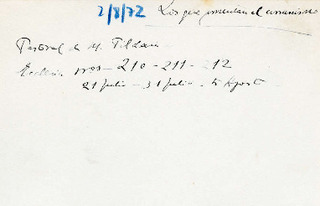 2/8/72 Los que fomentan el comunismo
Pastoral de M. Tildau
nros - 210 - 211 - 212
21 Julio - 31 Julio - 5 Agost